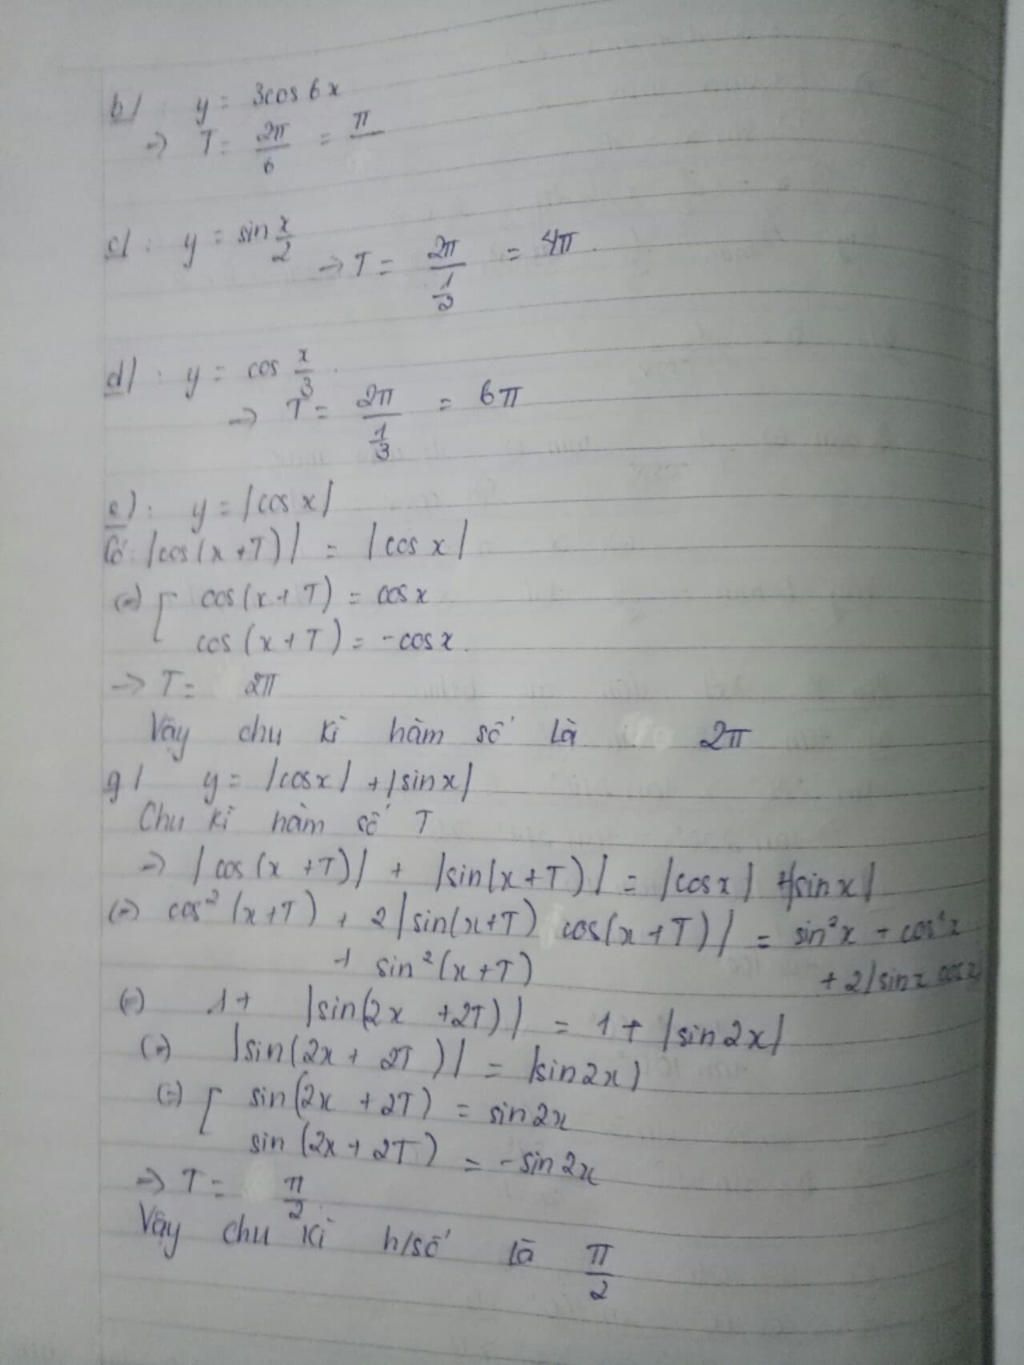 b/ y = 3cos 6x
=> T = 2π/6 = π
c/ : y = sin x/2
=> T = 2π/(1/2) = 4π.
d/ : y = cos x/3.
=> T = 2π/(1/3) = 6π
e) : y = |cos x|
Có: |cos(x+T)| = |cos x|
(=) [ cos(x+T) = cosx
cos(x+T) = -cosx.
=> T = 2π
Vậy chu kì hàm số là 2π
g/ y = |cosx| + |sinx|
Chu kì hàm số T
=> |cos(x+T)| + |sin(x+T)| = |cosx| + |sinx|
(=) cos²(x+T) + 2|sin(x+T) cos(x+T)| = sin²x + cos²x
+ sin²(x+T) + 2|sinx cosx|
(=) 1 + |sin(2x + 2T)| = 1 + |sin2x|
(=) |sin(2x + 2T)| = |sin2x|
(=) [ sin(2x + 2T) = sin2x
sin(2x + 2T) = -sin2x
=> T = π/2
Vậy chu kì h/số là π/2